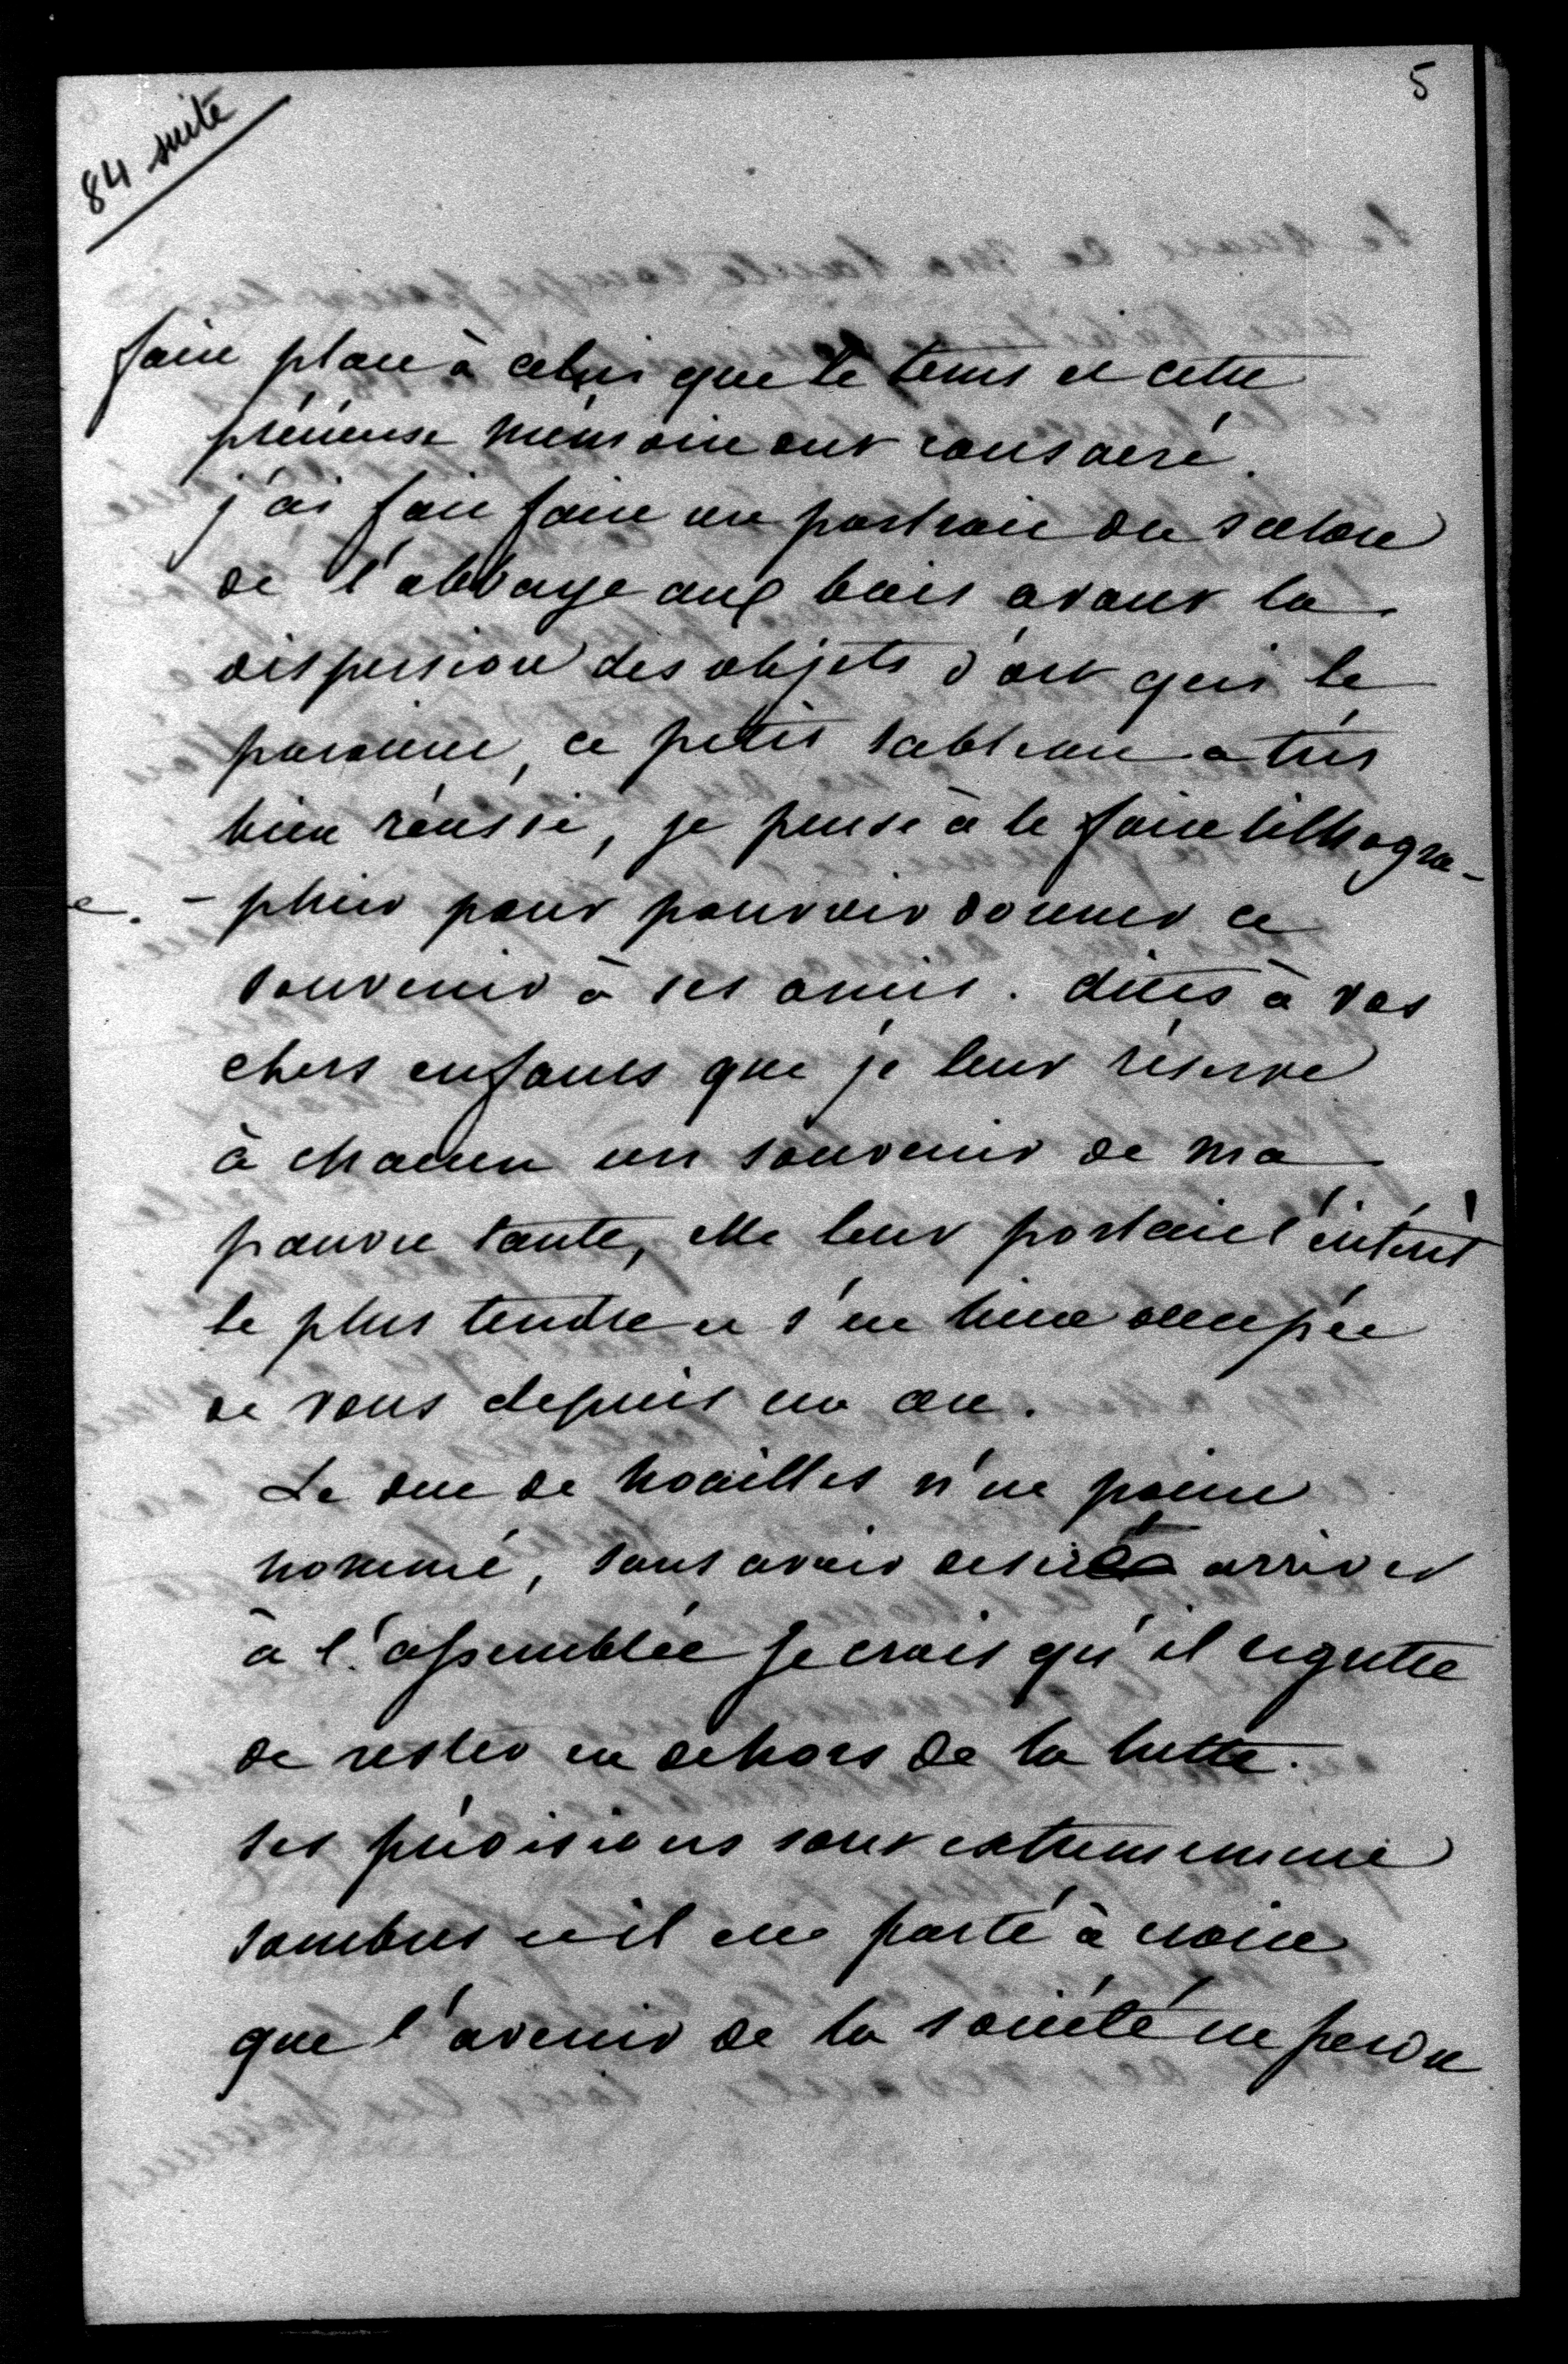 5
84 suite
faire place à celui que le tems et cette
précieuse mémoire ont consacré.
j'ai fait faire un portrait du salon
de l'abbaye aux bois avant la
dispersion des objets d'art qui le
paraient, ce petit tableau a très
bien réussi, je pense à le faire lithogra-
- phier pour pouvoir donner ce
souvenir à ses amis. dites à vos
chers enfants que je leur réserve
à chacun un souvenir de ma
pauvre tante, elle leur portait l'intérêt
le plus tendre et s'est bien occupée
de vous depuis un an.
Le duc de Noailles n'est point
nommé, sans avoir desiré arriver
à l'assemblée je crois qu'il regrette
de rester en dehors de la lutte.
ses prévisions sont extremement
sombres et il est porté à croire
que l'avenir de la société est perdu